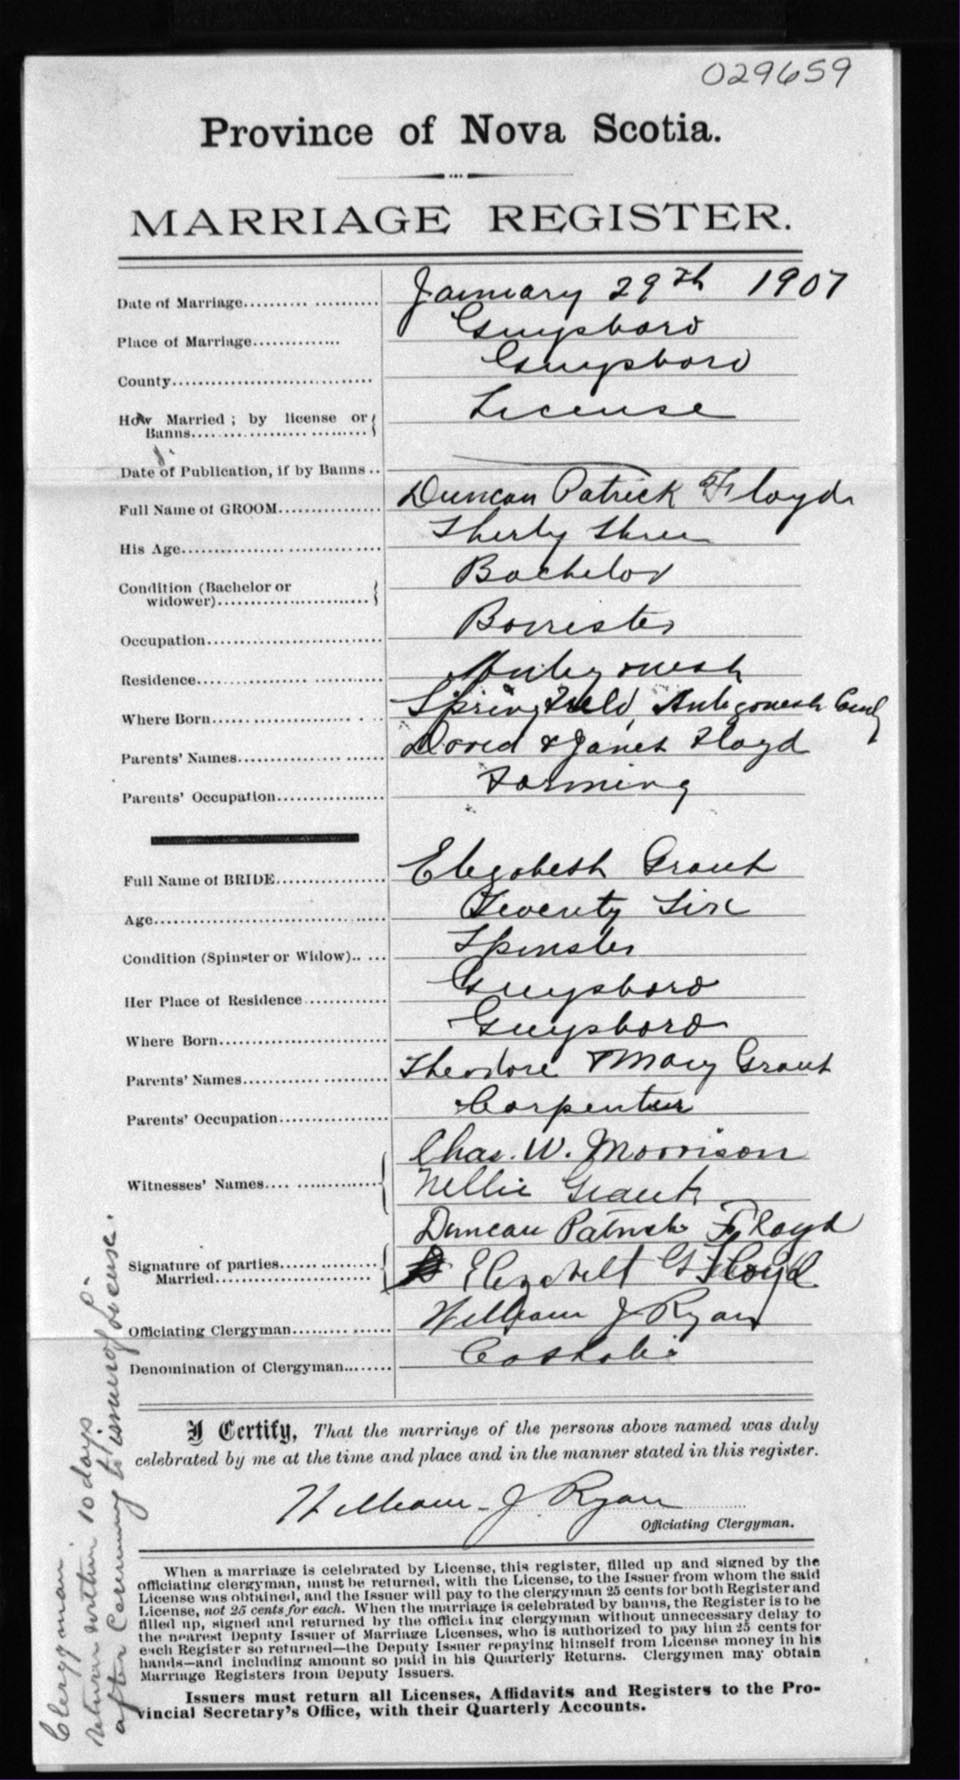 029659
Province of Nova Scotia.
MARRIAGE REGISTER.
Date of Marriage January 29th 1907
Place of Marriage Guysboro
County Guysboro
How Married; by license or License
Banns
Date of Publication, if by Banns
Full Name of GROOM Duncan Patrick Floyd
His Age Thirty Three
Condition (Bachelor or Bachelor
widower)
Occupation Barrister
Residence Antigonish
Where Born Springfield, Antigonish County
Parents' Names David & Janet Floyd
Parents' Occupation Farming
Full Name of BRIDE Elizabeth Grant
Age Twenty Six
Condition (Spinster or Widow) Spinster
Her Place of Residence Guysboro
Where Born Guysboro
Parents' Names Theodore & Mary Grant
Parents' Occupation Carpenter
Chas. W. Morrison
Witnesses' Names Nellie Grant
Duncan Patrick Floyd
Signature of parties Elizabeth G. Floyd
Married
Officiating Clergyman William J Ryan
Denomination of Clergyman Catholic
I Certify, That the marriage of the persons above named was duly
celebrated by me at the time and place and in the manner stated in this register.
William J. Ryan
Officiating Clergyman.
When a marriage is celebrated by License, this register, filled up and signed by the
officiating clergyman, must be returned, with the License, to the Issuer from whom the said
License was obtained, and the Issuer will pay to the clergyman 25 cents for both Register and
License, not 25 cents for each. When the marriage is celebrated by banns, the Register is to be
filled up, signed and returned by the officiating clergyman without unnecessary delay to
the nearest Deputy Issuer of Marriage Licenses, who is authorized to pay him 25 cents for
each Register so returned—the Deputy Issuer repaying himself from License money in his
hands—and including amount so paid in his Quarterly Returns. Clergymen may obtain
Marriage Registers from Deputy Issuers.
Issuers must return all Licenses, Affidavits and Registers to the Pro-
vincial Secretary's Office, with their Quarterly Accounts.
Clergyman.
return within 10 days
after Ceremony to issuer of License.